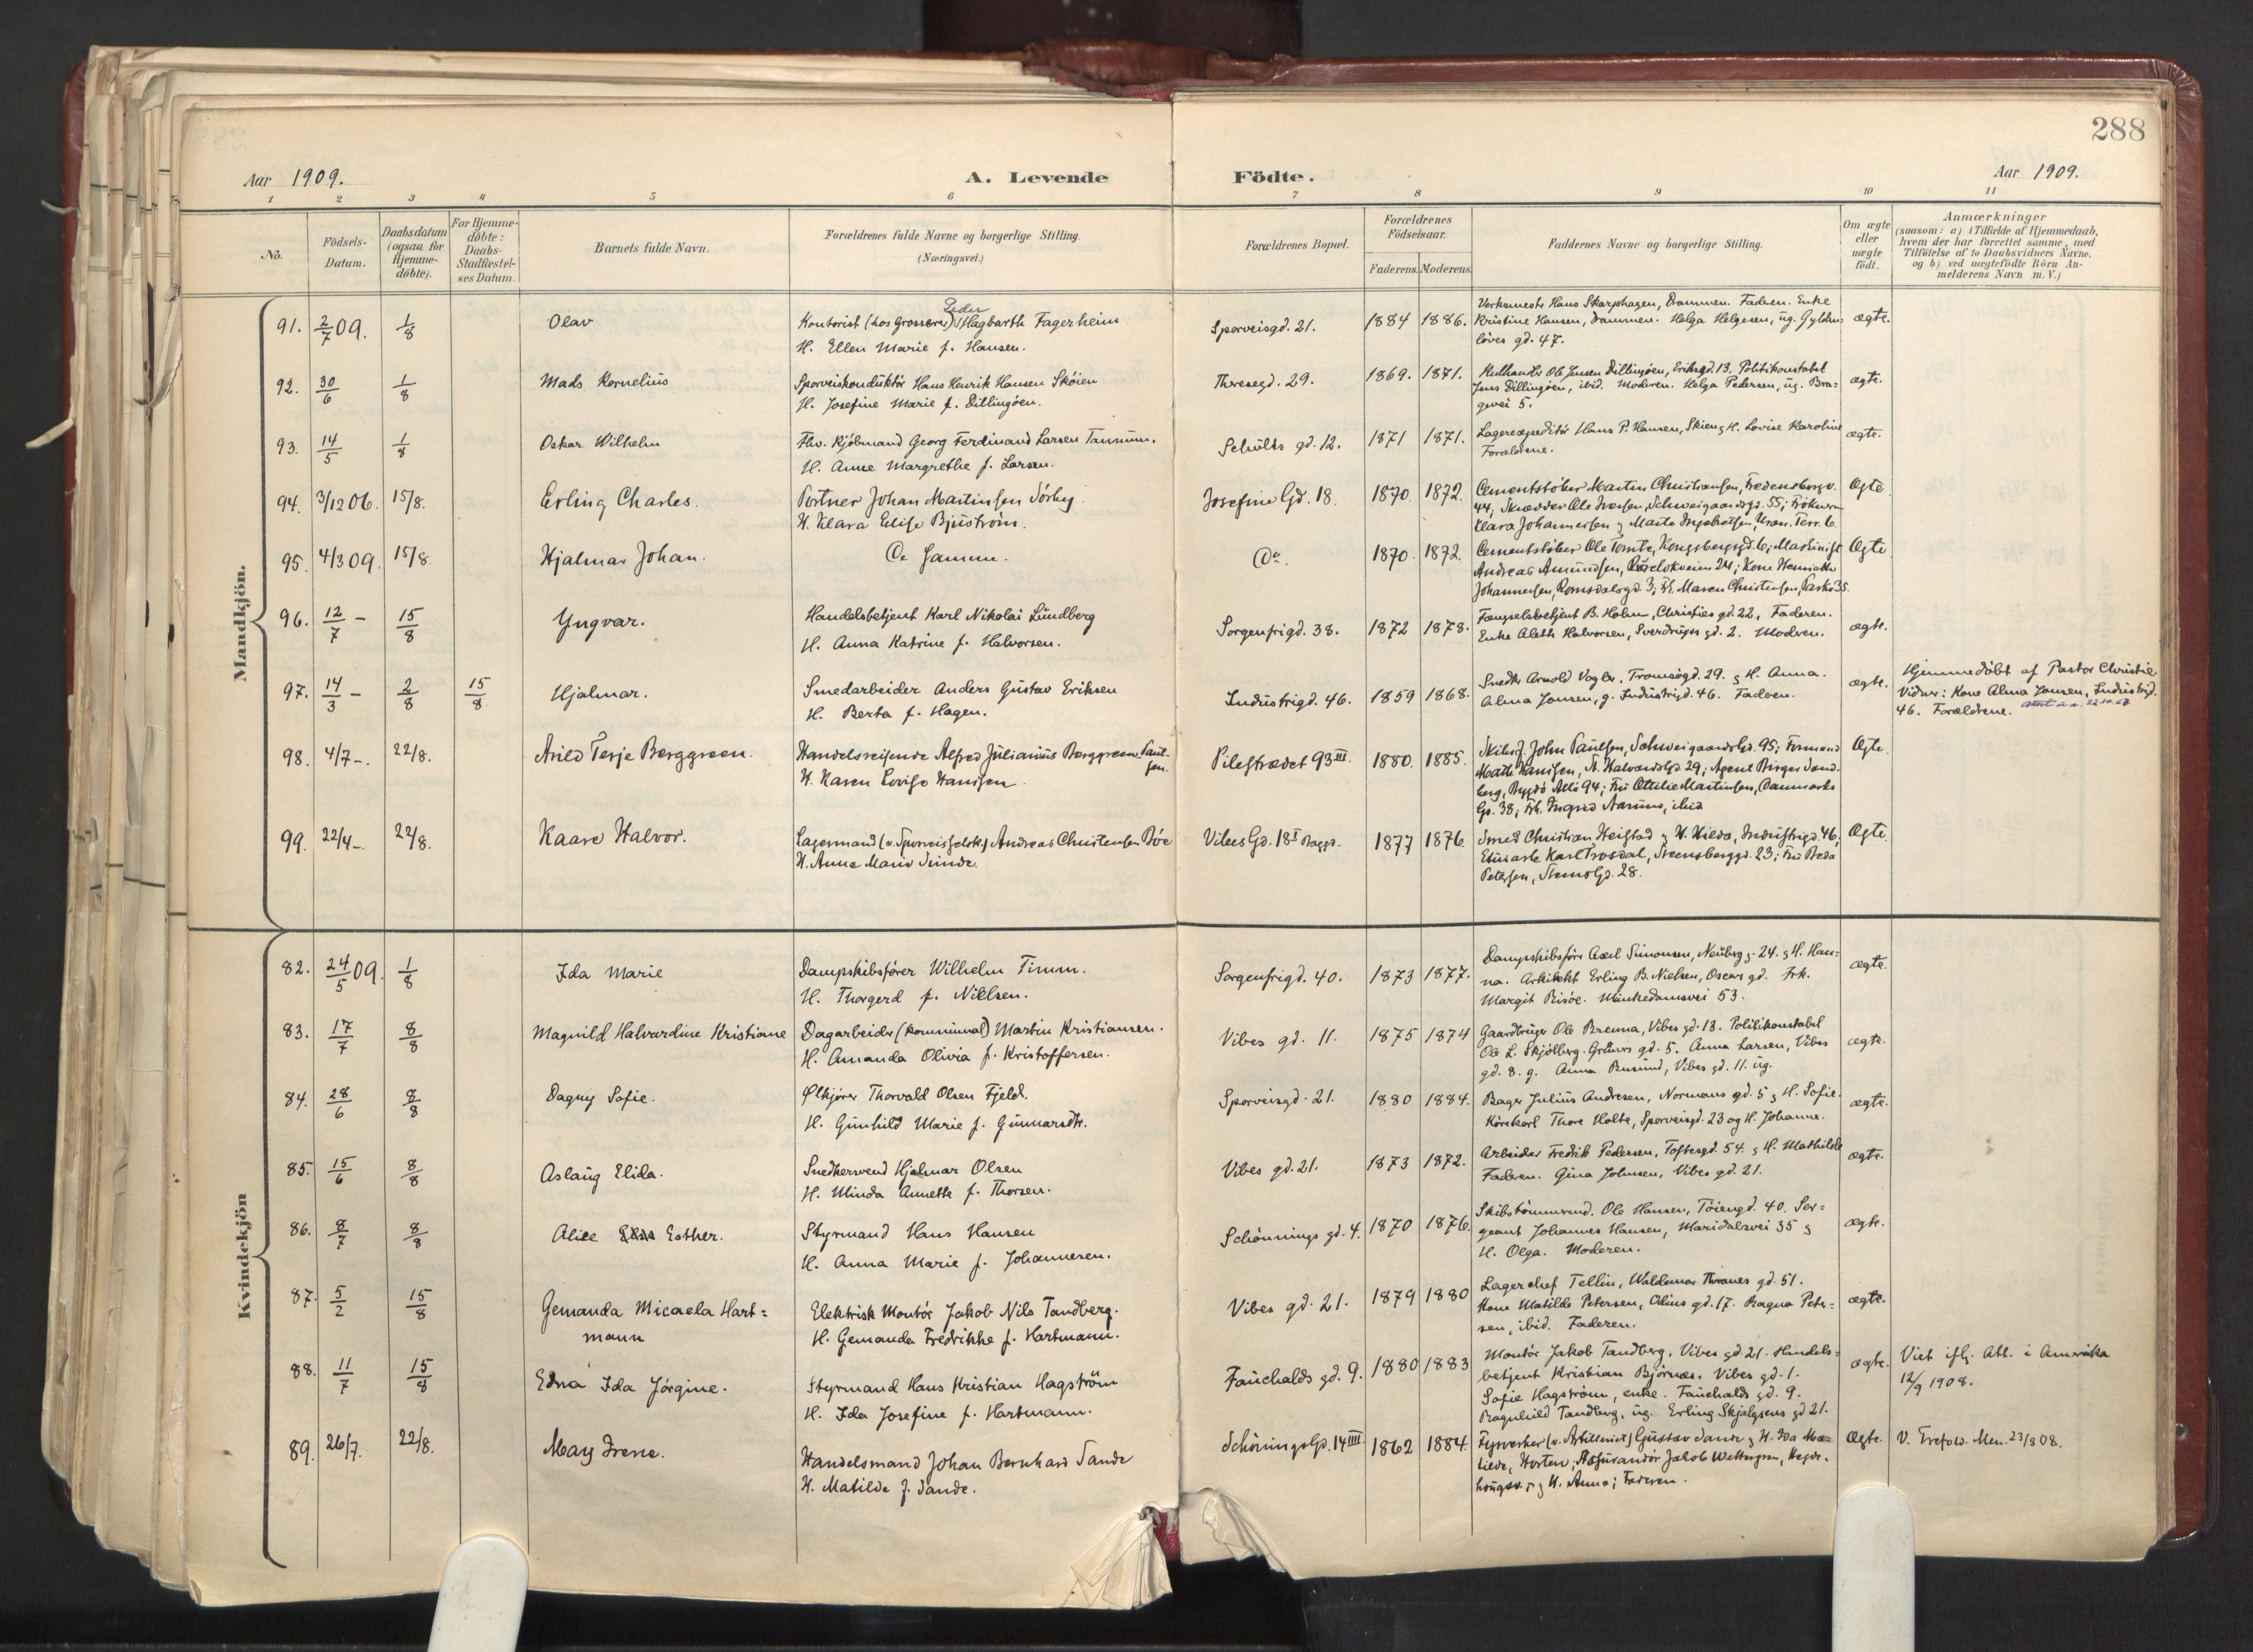 288
Aar 1909. A. Levende Födte. Aar 1909.
1 2 3 4 5 6 7 8 9 10 11
No.
Födsels-Datum.
Daabsdatum (ogsaa for Hjemme-döbte).
For Hjemme-döbte: Daabs-Stadfæstel-ses Datum.
Barnets fulde Navn.
Forældrenes fulde Navne og borgerlige Stilling. (Næringsvei.)
Forældrenes Bopæl.
Forældrenes Födselsaar.
Faderens. Moderens.
Faddernes Navne og borgerlige Stilling.
Om ægte eller uægte födt.
Anmærkninger
(saasom: a) i Tilfælde af Hjemmedaab,
hvem der har forrettet samme, med
Tilföielse af to Daabsvidners Navne.
og b) ved uægtefödte Börn An-
melderens Navn m.V.)
Mandkjön.
91. 2/7 09. 1/8 Olav
Kontorist (hos Grosserer) Peder Hagbarth Fagerheim
H. Ellen Marie f. Hansen.
Sporveisgd. 21. 1884 1886.
Verksmestr Hans Skarphagen, Drammen. Faderen. Enke
Kristine Hansen, Drammen. Helga Helgesen, ug. Gylden=
löves gd. 47.
ægte.
92. 30/6 1/8 Mads Kornelius
Sporveiskonduktör Hans Henrik Hansen Sköien
H. Josefine Marie f. Dillingöen.
Theresegd. 29. 1869. 1871.
Kulhandler Ole Jensen Dillingöen, Eriksgd. 13. Politikonstabel
Jens Dillingöen, ibid. Moderen. Helga Pedersen, ug. Bra=
gevei 5.
ægte.
93. 14/5 1/8 Oskar Wilhelm
Fhv. Kjöbmand Georg Ferdinand Larsen Tanum.
H. Anne Margrethe f. Larsen.
Schults gd. 12. 1871 1871.
Lagerexpeditör Hans P. Hansen, Skien & H. Lovise Karoline
Forældrene.
ægte.
94. 3/12 06. 15/8. Erling Charles.
Portner Johan Martinsen Sörby
H. Klara Elise Bjuström.
Josefine Gd. 18. 1870. 1872.
Cementstöber Martin Christiansen, Fredensborgv.
44, Skrædder Ole Iversen, Schweigaardsgd. 55; Fröknerne
Klara Johannessen & Marta Ingebretsen, Kran. Terr. 6.
Ægte
95. 4/3 09. 15/8. Hjalmar Johan.
De Samme.
Do. 1870. 1872.
Cementstöber Ole Tomte, Kongsbergsgd. 6; Maskinist
Andreas Amundsen, 24; Kone Henriette
Johannessen, Romsdalsgd. 3; Fr. Maren Christensen, Parkv. 35.
Ægte
96. 12/7 – 15/8 Yngvar.
Handelsbetjent Karl Nikolai Lundberg
H. Anna Katrine f. Halvorsen.
Sorgenfrigd. 38. 1872 1878.
Fængselsbetjent B. Holm, Christies gd. 22, Faderen.
Enke Aleth Halvorsen, Sverdrups gd. 2. Modren.
ægte.
97. 14/3 – 2/8 15/8 Hjalmar.
Smedarbeider Anders Gustav Eriksen
H. Berta f. Hagen.
Industrigd. 46. 1859 1868.
Snedkr Arnold Vogler, Tromsögd. 29. & H. Anna.
Alma Jonsen, g. Industrigd. 46. Faderen.
ægte.
Hjemmedöbt af Pastor Christie
Vidner: Kone Alma Jonsen, Industrigd.
46. Forældrene.
98. 4/7 –. 22/8. Arild Terje Berggreen.
Handelsreisende Alfred Julianius Berggreen Paul-
sen.
H. Karen Lovise Hansen
Pilestrædet 93 III. 1880. 1885.
John Paulsen, Schweigaardsgd. 95; Formand
Mathi Hansen, St. Halvardsgd 29; Agent Birger Sand-
berg, Bygdö Allé 94; Fru Ottilie Martinsen, Danmarks
Gd. 38; Frk. Ingrid Aarums, ibid
Ægte.
99. 22/4 –. 22/8. Kaare Halvor.
Lagermand (v. Sporveisselsk.) Andreas Christensen Böe
H. Anne Marie Svinde
Vibes Gd. 18 I Baggd. 1877 1876.
Smed Christian Heigstad & H. Hilda, Industrigd 46,
Karl Trosdal, Steensberggd. 23; Fru Beda
Petersen, Steensgd. 28.
Ægte
Kvindekjön
82. 24/5 09. 1/8 Ida Marie
Dampskibsförer Wilhelm Timm.
H. Thorgerd f. Nielsen.
Sorgenfrigd. 40. 1873 1877.
Dampskibsförer Axel Simonsen, Neuberg g. 24. & H. Han=
na. Arkitekt Erling B. Nielsen, Oscars gd. Frk.
Margit Risöe. Munkedamsvei 53.
ægte.
83. 17/7 8/8 Magnild Halvardine Kristiane
Dagarbeider (kommunal) Martin Kristiansen.
H. Amanda Olivia f. Kristoffersen.
Vibes gd. 11. 1875 1874
Gaardbruger Ole Brenna, Vibes gd. 13. Politikonstabel
Ole L. Skjölberg. Grüners gd. 5. Anna Larsen, Vibes
gd. 8. g. Anna Rusund, Vibes gd. 11. ug.
ægte.
84. 28/6 8/8 Dagny Sofie.
Ølkjörer Thorvald Olsen Fjeld.
H. Gunhild Marie f. Gunnarsdtr.
Sporveisgd. 21. 1880 1884.
Bager Julius Andresen, Normans gd. 5 & H. Sofie.
Körekarl Thore Holte, Sporveisgd. 23 og H. Johanne.
ægte.
85. 15/6 8/8 Aslaug Elida.
Snedkersvend Hjalmar Olsen
H. Minda Annette f. Thorsen.
Vibes gd. 21. 1873 1872.
Arbeider Fredrik Pedersen, Toftesgd. 54. & H. Mathilde
Faderen. Gina Johnsen, Vibes gd. 21.
ægte.
86. 8/7 8/8 Alice Esther.
Styrmand Hans Hansen
H. Anna Marie f. Johannesen.
Schönnings gd. 4. 1870 1876.
Skibstömmrmd. Ole Hansen, Töiengd. 40. Ser=
geant Johannes Hansen, Maridalsvei 35 &
H. Olga. Moderen.
ægte.
87. 5/2 15/8 Gemanda Micaela Hart=
mann
Elektrisk Montör Jakob Nils Tandberg.
H. Gemanda Fredrikke f. Hartmann.
Vibes gd. 21. 1879 1880
Lagerchef Tellin, Waldemar Thranes gd. 51.
Kone Matilde Petersen, Odins gd. 17. Ragna Peter=
sen, ibid. Faderen.
ægte.
88. 11/7 15/8 Edna Ida Jörgine.
Styrmand Hans Kristian Hagström
H. Ida Josefine f. Hartmann.
Fauchalds gd. 9. 1880 1883
Montör Jakob Tandberg, Vibes gd. 21. Handels=
betjent Kristian Björnes. Vibes gd. 1.
Sofie Hagström, enke. Fauchalds gd. 9.
Ragnhild Tandberg. ug. Erling Skjalgsens gd 21.
ægte.
Viet iflg. Att. i Amerika
12/9 1908.
89. 26/7. 22/8. May Irene.
Handelsmand Johan Bernhard Sande
H. Matilde f. Sande.
Schönings Gd. 14 III. 1862 1884.
Fyrverker (v. Artilleriet) Gustav Sande & H. Ida Ma-
tilde, Horten; Assurandör Jakob Wettergren, Hegde-
haugsv. 5 & H. Anna; Faderen.
Ægte.
V. Trefold. Men. 23/8 08.